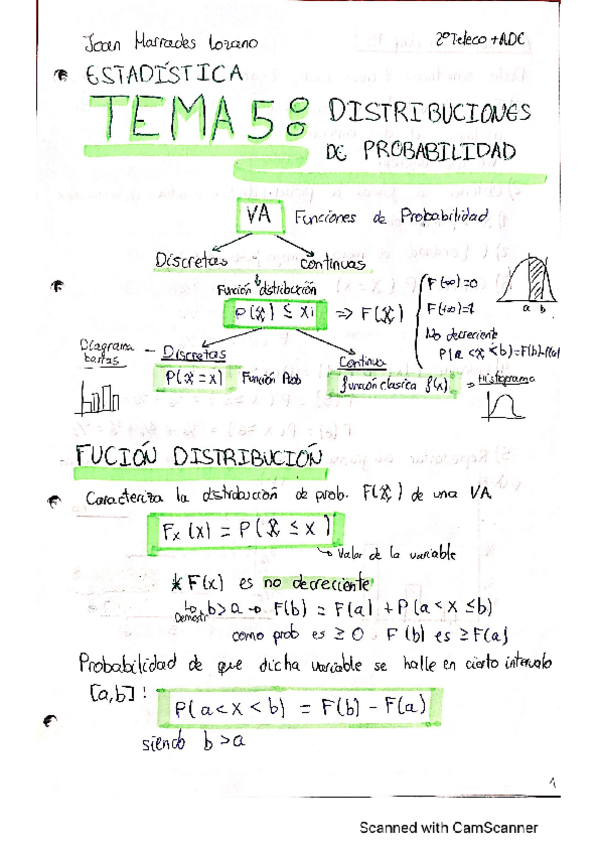 Joan Marrades Lozano 2º Teleco + ADE
ESTADÍSTICA
TEMA 5: DISTRIBUCIONES
DE PROBABILIDAD
VA Funciones de Probabilidad
Discretas continuas
Función distribución
P(X) ≤ xi ⇒ F(X)
F(-∞)=0
F(+∞)=1
No decreciente
P(a<x≤b)=F(b)-F(a)
a b
Diagrama barras - Discretas
P(X=x) Función Prob
Continua
función clasica f(x) = Histograma
FUCIÓN DISTRIBUCIÓN
Caracteriza la distribución de prob. F(X) de una VA
Fx (x) = P(X ≤ x)
Valor de la variable
* F(x) es no decreciente
Demostr b>a → F(b) = F(a) + P(a<x≤b)
como prob es ≥ 0. F(b) es ≥ F(a)
Probabilidad de que dicha variable se halle en cierto intervalo
[a,b]:
P(a<x<b) = F(b) - F(a)
siendo b>a
1
Scanned with CamScanner